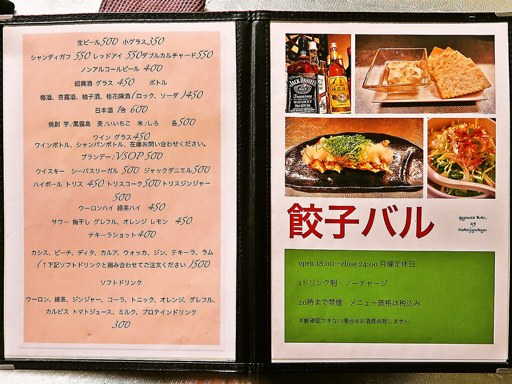 生ビール500 小グラス350
シャンディガフ 550 レッドアイ 550ダブルカルチャード550
ノンアルコールビール 400
紹興酒 グラス 450 ボトル
梅酒、杏露酒、柚子酒、桂花陳酒(ロック、ソーダ)450
日本酒 1合 600
焼酎 芋/黒霧島 麦/いいちこ 米/しろ 各500
ワイン グラス450
ワインボトル、シャンパンボトル、在庫お問い合わせください。
ブランデー VSOP 500
ウイスキー シーバスリーガル 500 ジャックダニエル500
ハイボール トリス 450 トリスコーク500トリスジンジャー
500
ウーロンハイ 緑茶ハイ 450
サワー 梅干し グレフル、オレンジ レモン 450
テキーラショット400
カシス、ピーチ、ディタ、カルア、ウォッカ、ジン、テキーラ、ラム
(↑下記ソフトドリンクと組み合わせてご注文ください)500
ソフトドリンク
ウーロン、緑茶、ジンジャー、コーラ、トニック、オレンジ、グレフル、
カルピス トマトジュース、ミルク、プロテインドリンク
300
JACK DANIEL'S
餃子バル
open 18:00〜close 24:00 月曜定休日
1ドリンク制・ノーチャージ
20時まで禁煙 メニュー価格は税込み
年齢確認できない場合はお酒提供致しません